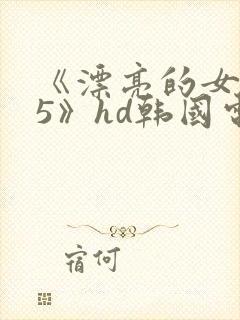 《漂亮的女
5》hd韩国
宿何